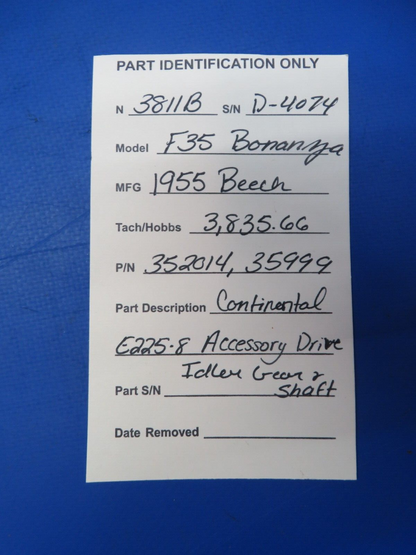 PART IDENTIFICATION ONLY
N 3811B S/N D-4074
Model F35 Bonanza
MFG 1955 Beech
Tach/Hobbs 3,835.66
P/N 352014, 35999
Part Description Continental
E225-8 Accessory Drive
Idler Gear &
Part S/N shaft
Date Removed